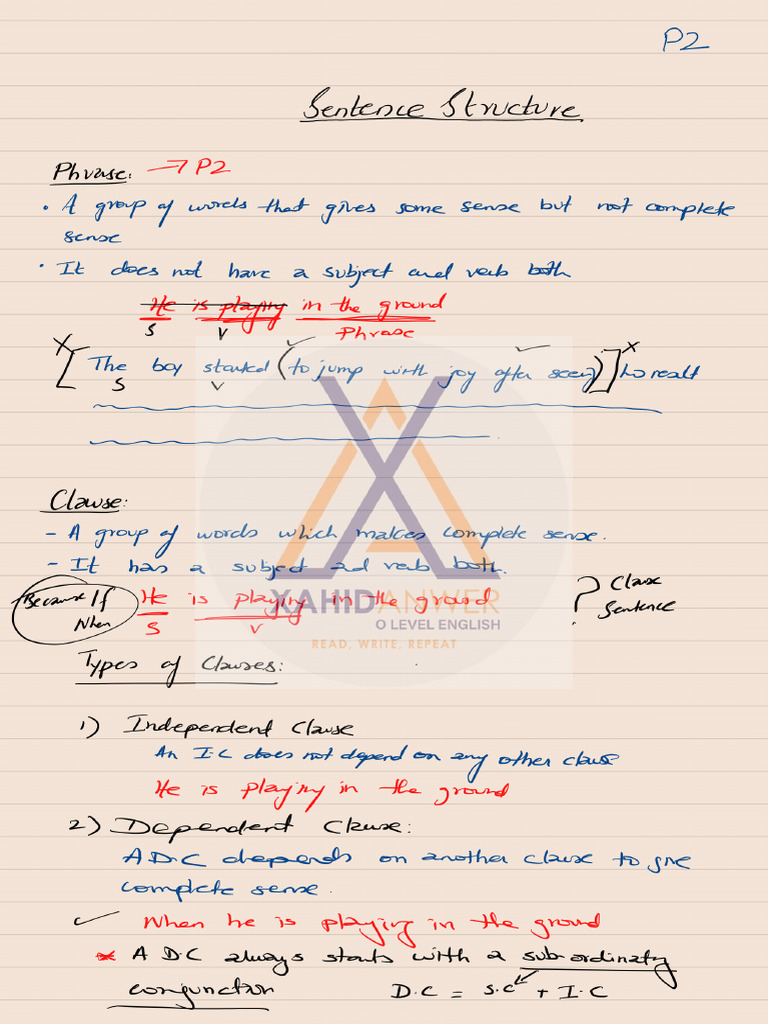 P2
Sentence Structure
Phrase: → P2
• A group of words that gives some sense but not complete
sense
• It does not have a subject and verb both
He is playing in the ground
S V Phrase
X [ The boy started (to jump with joy after seeing)] X his result
S V
Clause:
- A group of words which makes complete sense.
- It has a subject and verb both.
Because If When He is playing in the ground ? Clause Sentence
S V
XAHID ANWER
O LEVEL ENGLISH
READ, WRITE, REPEAT
Types of Clauses:
1) Independent Clause
An I.C does not depend on any other clause
He is playing in the ground
2) Dependent Clause:
A D.C depends on another clause to give
complete sense.
✓ When he is playing in the ground
* A D.C always starts with a subordinating
conjunction D.C = S.C + I.C